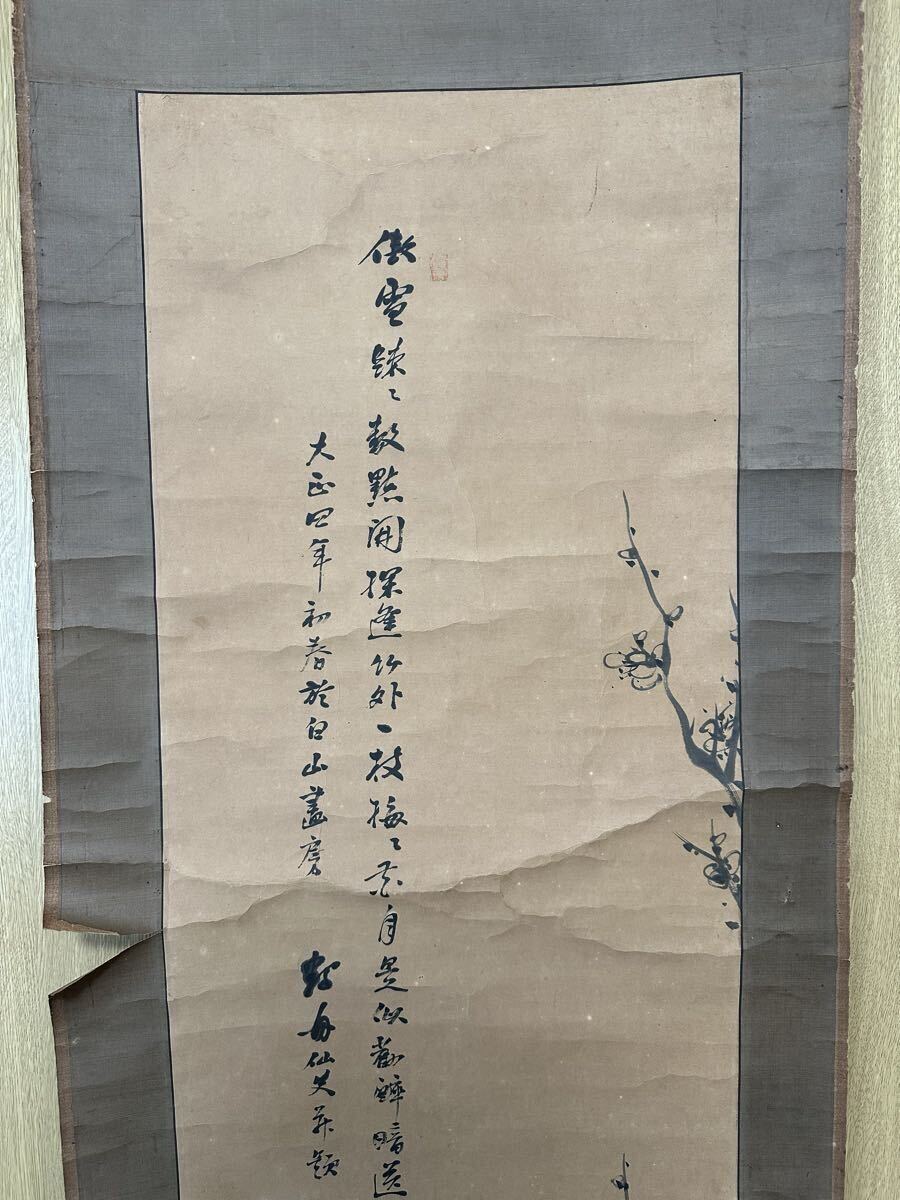 傲雪疎々数點開探逢竹外一枝梅々花自是似勸醉暗送
大正四年初春於白山畫房
舟仙史并題